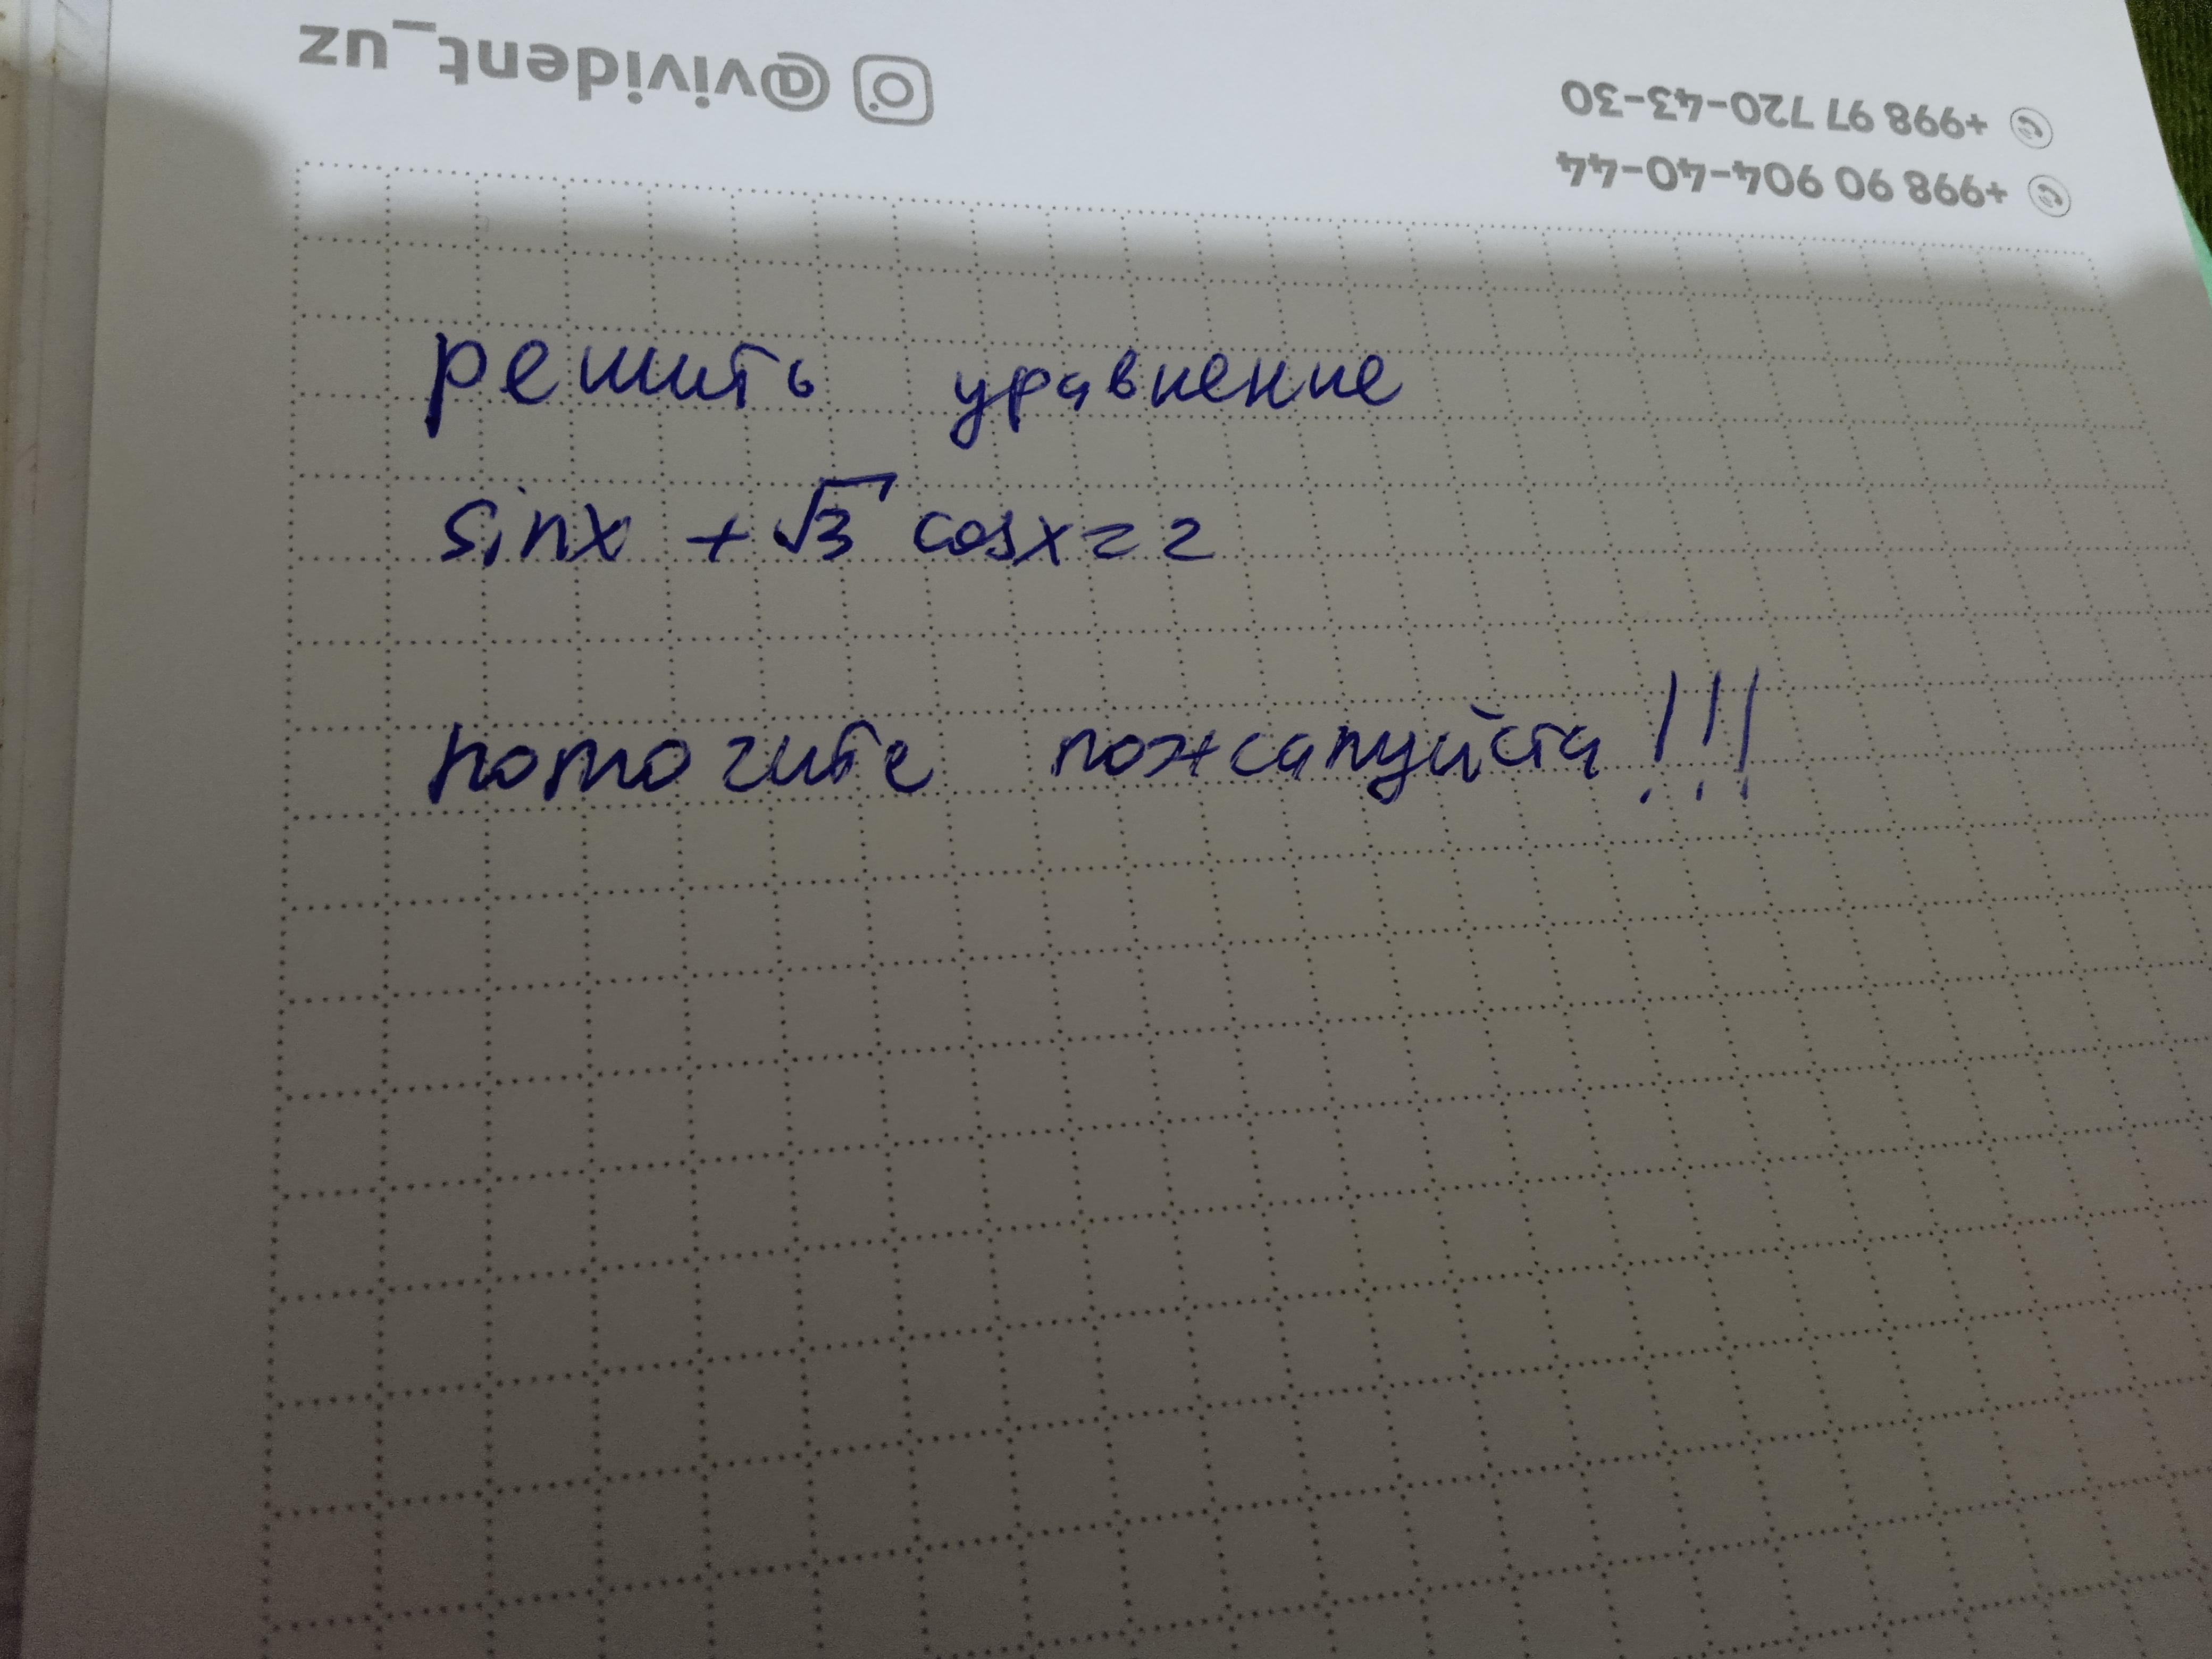 @vivident_uz
+998 97 720-43-30
+998 90 904-40-44
решить уравнение
sinx + √3 cosx = 2
помогите пожалуйста!!!